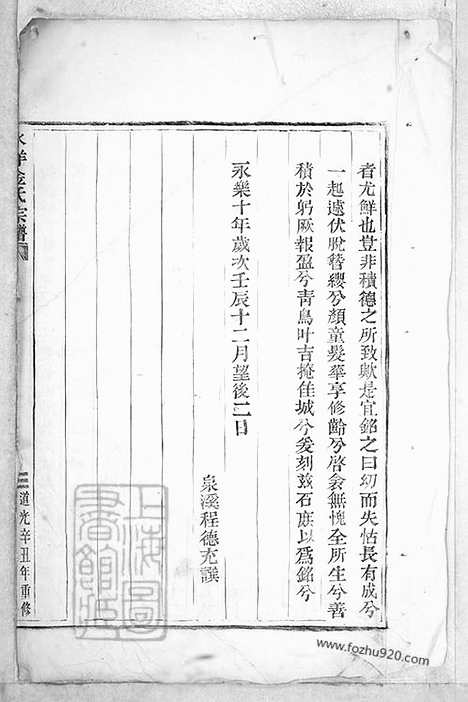 者尤鮮也豈非積德之所致歟是宜銘之曰幼而失怙長有成兮
一起遠伏脫簪纓兮顏童髮華享修齡兮啓衾無愧全所生兮善
積於躬厥報盈兮青烏叶吉掩佳城兮爰刻兹石庶以為銘兮
永樂十年歲次壬辰十二月望後二日
泉溪程德充譔
金氏宗譜
道光辛丑年重修
上海圖書館藏
www.fozhu920.com